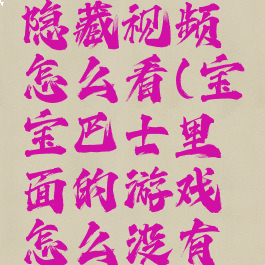 隐藏视频
怎么看(宝
宝巴士里
面的游戏
怎么没有